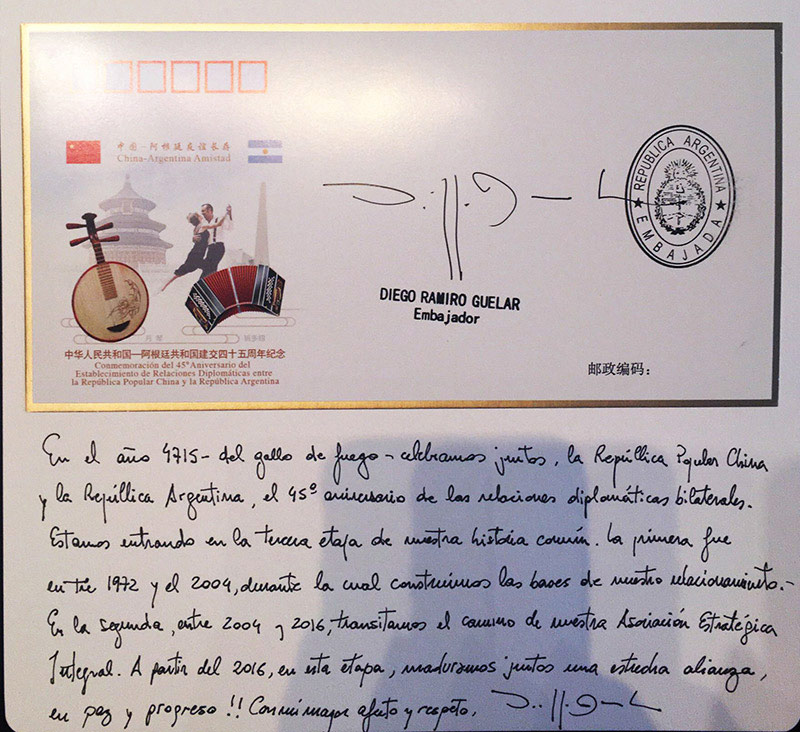 中国—阿根廷友谊长存
China-Argentina Amistad
REPUBLICA ARGENTINA
EMBAJADA
DIEGO RAMIRO GUELAR
Embajador
月琴
中华人民共和国—阿根廷共和国建交四十五周年纪念
Conmemoración del 45º Aniversario del
Establecimiento de Relaciones Diplomáticas entre
la República Popular China y la República Argentina
邮政编码：
En el año 4715 - del gallo de fuego - celebramos juntos, la República Popular China
y la República Argentina, el 45º aniversario de las relaciones diplomáticas bilaterales.
Estamos entrando en la tercera etapa de nuestra historia común. La primera fue
entre 1972 y el 2004, durante la cual construimos las bases de nuestro relacionamiento.-
En la segunda, entre 2004 y 2016, transitamos el camino de nuestra Asociación Estratégica
Integral. A partir del 2016, en esta etapa, maduramos juntos una estrecha alianza,
en paz y progreso!! Con mi mayor afecto y respeto,